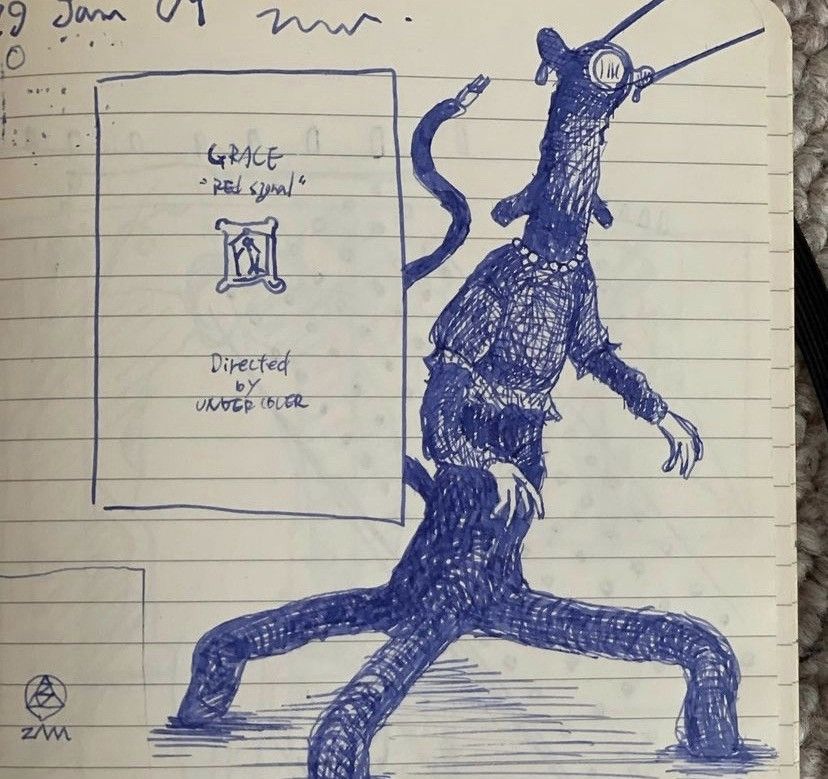 29 Jan 09
GRACE
"RED signal"
Directed
by
UNDERCOVER
ZAM